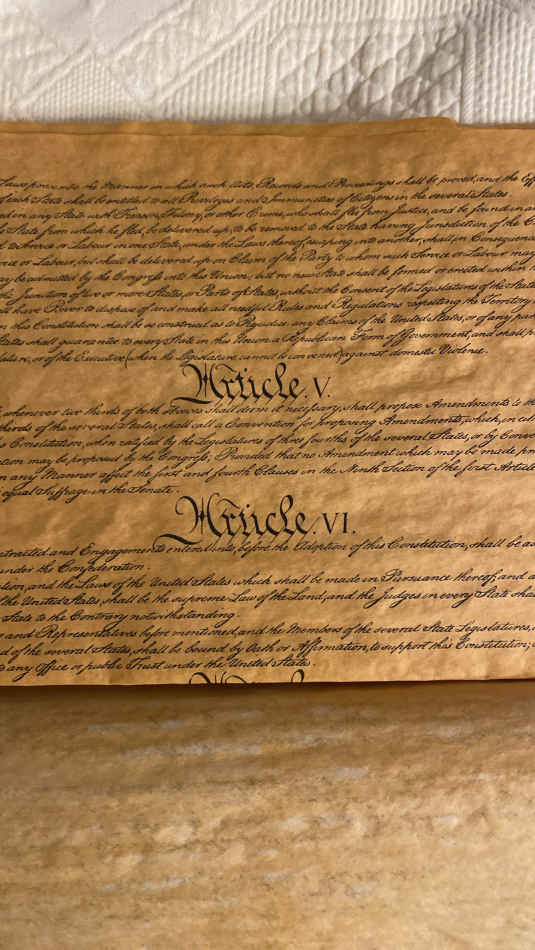 Laws prescribe the Manner in which such Acts, Records and Proceedings shall be proved, and the Eff
of each State shall be entitled to all Privileges and Immunities of Citizens in the several States.
ed in any State with Treason, Felony, or other Crime, who shall flee from Justice, and be found in an
State from which he fled, be delivered up, to be removed to the State having Jurisdiction of the C
to Service or Labour in one State, under the Laws thereof, escaping into another, shall, in Consequence
vice or Labour, but shall be delivered up on Claim of the Party to whom such Service or Labour may
ay be admitted by the Congress into this Union; but no new State shall be formed or erected within
the Junction of two or more States, or Parts of States, without the Consent of the Legislatures of the State
all have Power to dispose of and make all needful Rules and Regulations respecting the Territory
in this Constitution shall be so construed as to Prejudice any Claims of the United States, or of any par
States shall guarantee to every State in this Union a Republican Form of Government, and shall p
lature, or of the Executive (when the Legislature cannot be convened) against domestic Violence.
Article. V.
whenever two thirds of both Houses shall deem it necessary, shall propose Amendments to th
thirds of the several States, shall call a Convention for proposing Amendments, which, in eit
Constitution, when ratified by the Legislatures of three fourths of the several States, or by Conve
ation may be proposed by the Congress; Provided that no Amendment which may be made pri
in any Manner affect the first and fourth Clauses in the Ninth Section of the first Article
equal Suffrage in the Senate.
Article. VI.
ontracted and Engagements entered into, before the Adoption of this Constitution, shall be as
under the Confederation.
tion, and the Laws of the United States which shall be made in Pursuance thereof; and a
the United States, shall be the supreme Law of the Land; and the Judges in every State sha
State to the Contrary notwithstanding.
s and Representatives before mentioned, and the Members of the several State Legislatures,
d of the several States, shall be bound by Oath or Affirmation, to support this Constitution;
o any Office or public Trust under the United States.